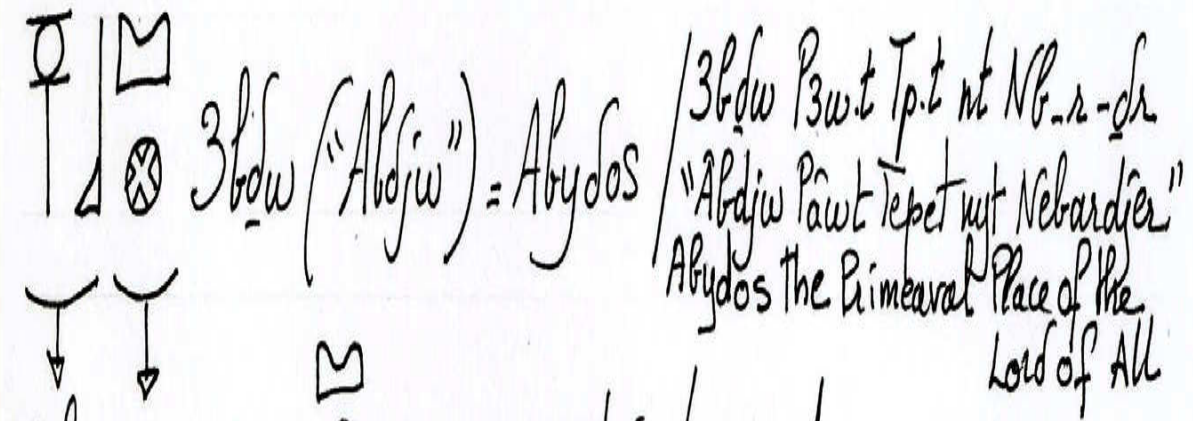 3bḏw ("Abdjw") = Abydos /
3bḏw P3w.t Tp.t nt Nb-r-ḏr
"Abdjw Pâwt Tepet nyt Nebardjer"
Abydos the Primeaval Place of the
Lord of All